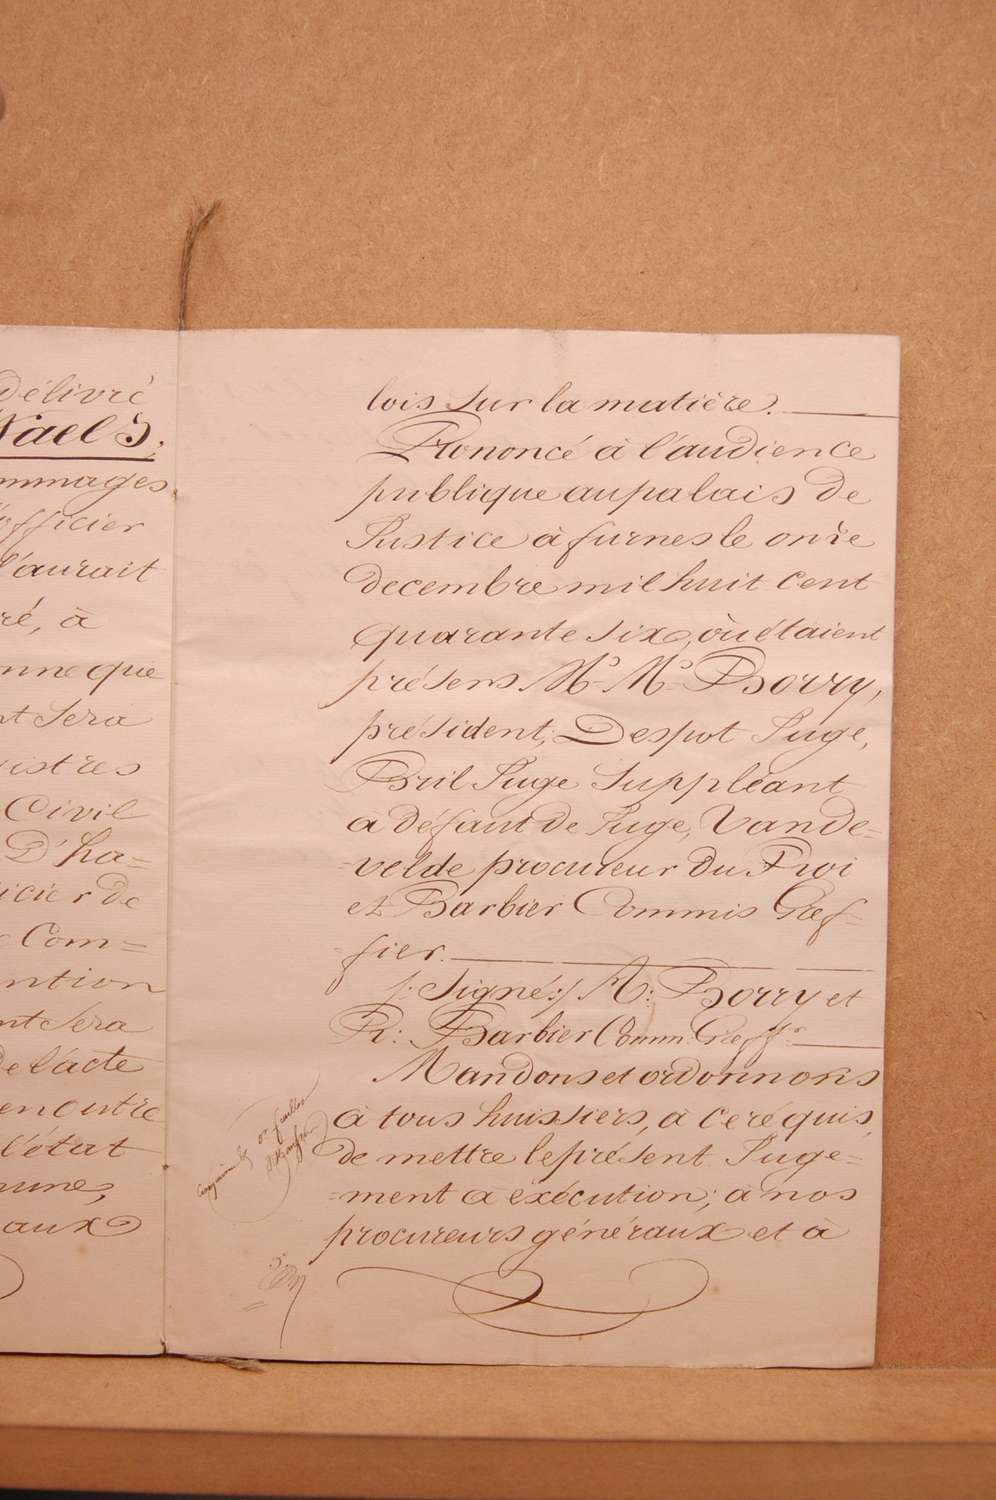 Délivré
Naels;
mmages
officier
l'aurait
ré, à
nne que
nt Sera
istres
Civil
D'ha=
icier de
Com=
ntion
nt Sera
de l'acte
en outre
l'état
mune,
aux
lois sur la matière.
Prononcé à l'audience
publique au palais de
Justice à furnes le onze
decembre mil huit cent
quarante six, où étaient
présens Mrs Mrs Borry,
président, Despot Juge,
Bril Juge Suppléant
a défaut de Juge, Vande=
=velde procureur du Roi
et Barbier Commis Gref=
=fier.
/:Signé:/ M: Borry et
R: Barbier Comm: Greffr
Mandons et ordonnons
à tous huissiers, à ce réquis,
de mettre le présent Juge=
=ment à exécution; à nos
procureurs généraux et à